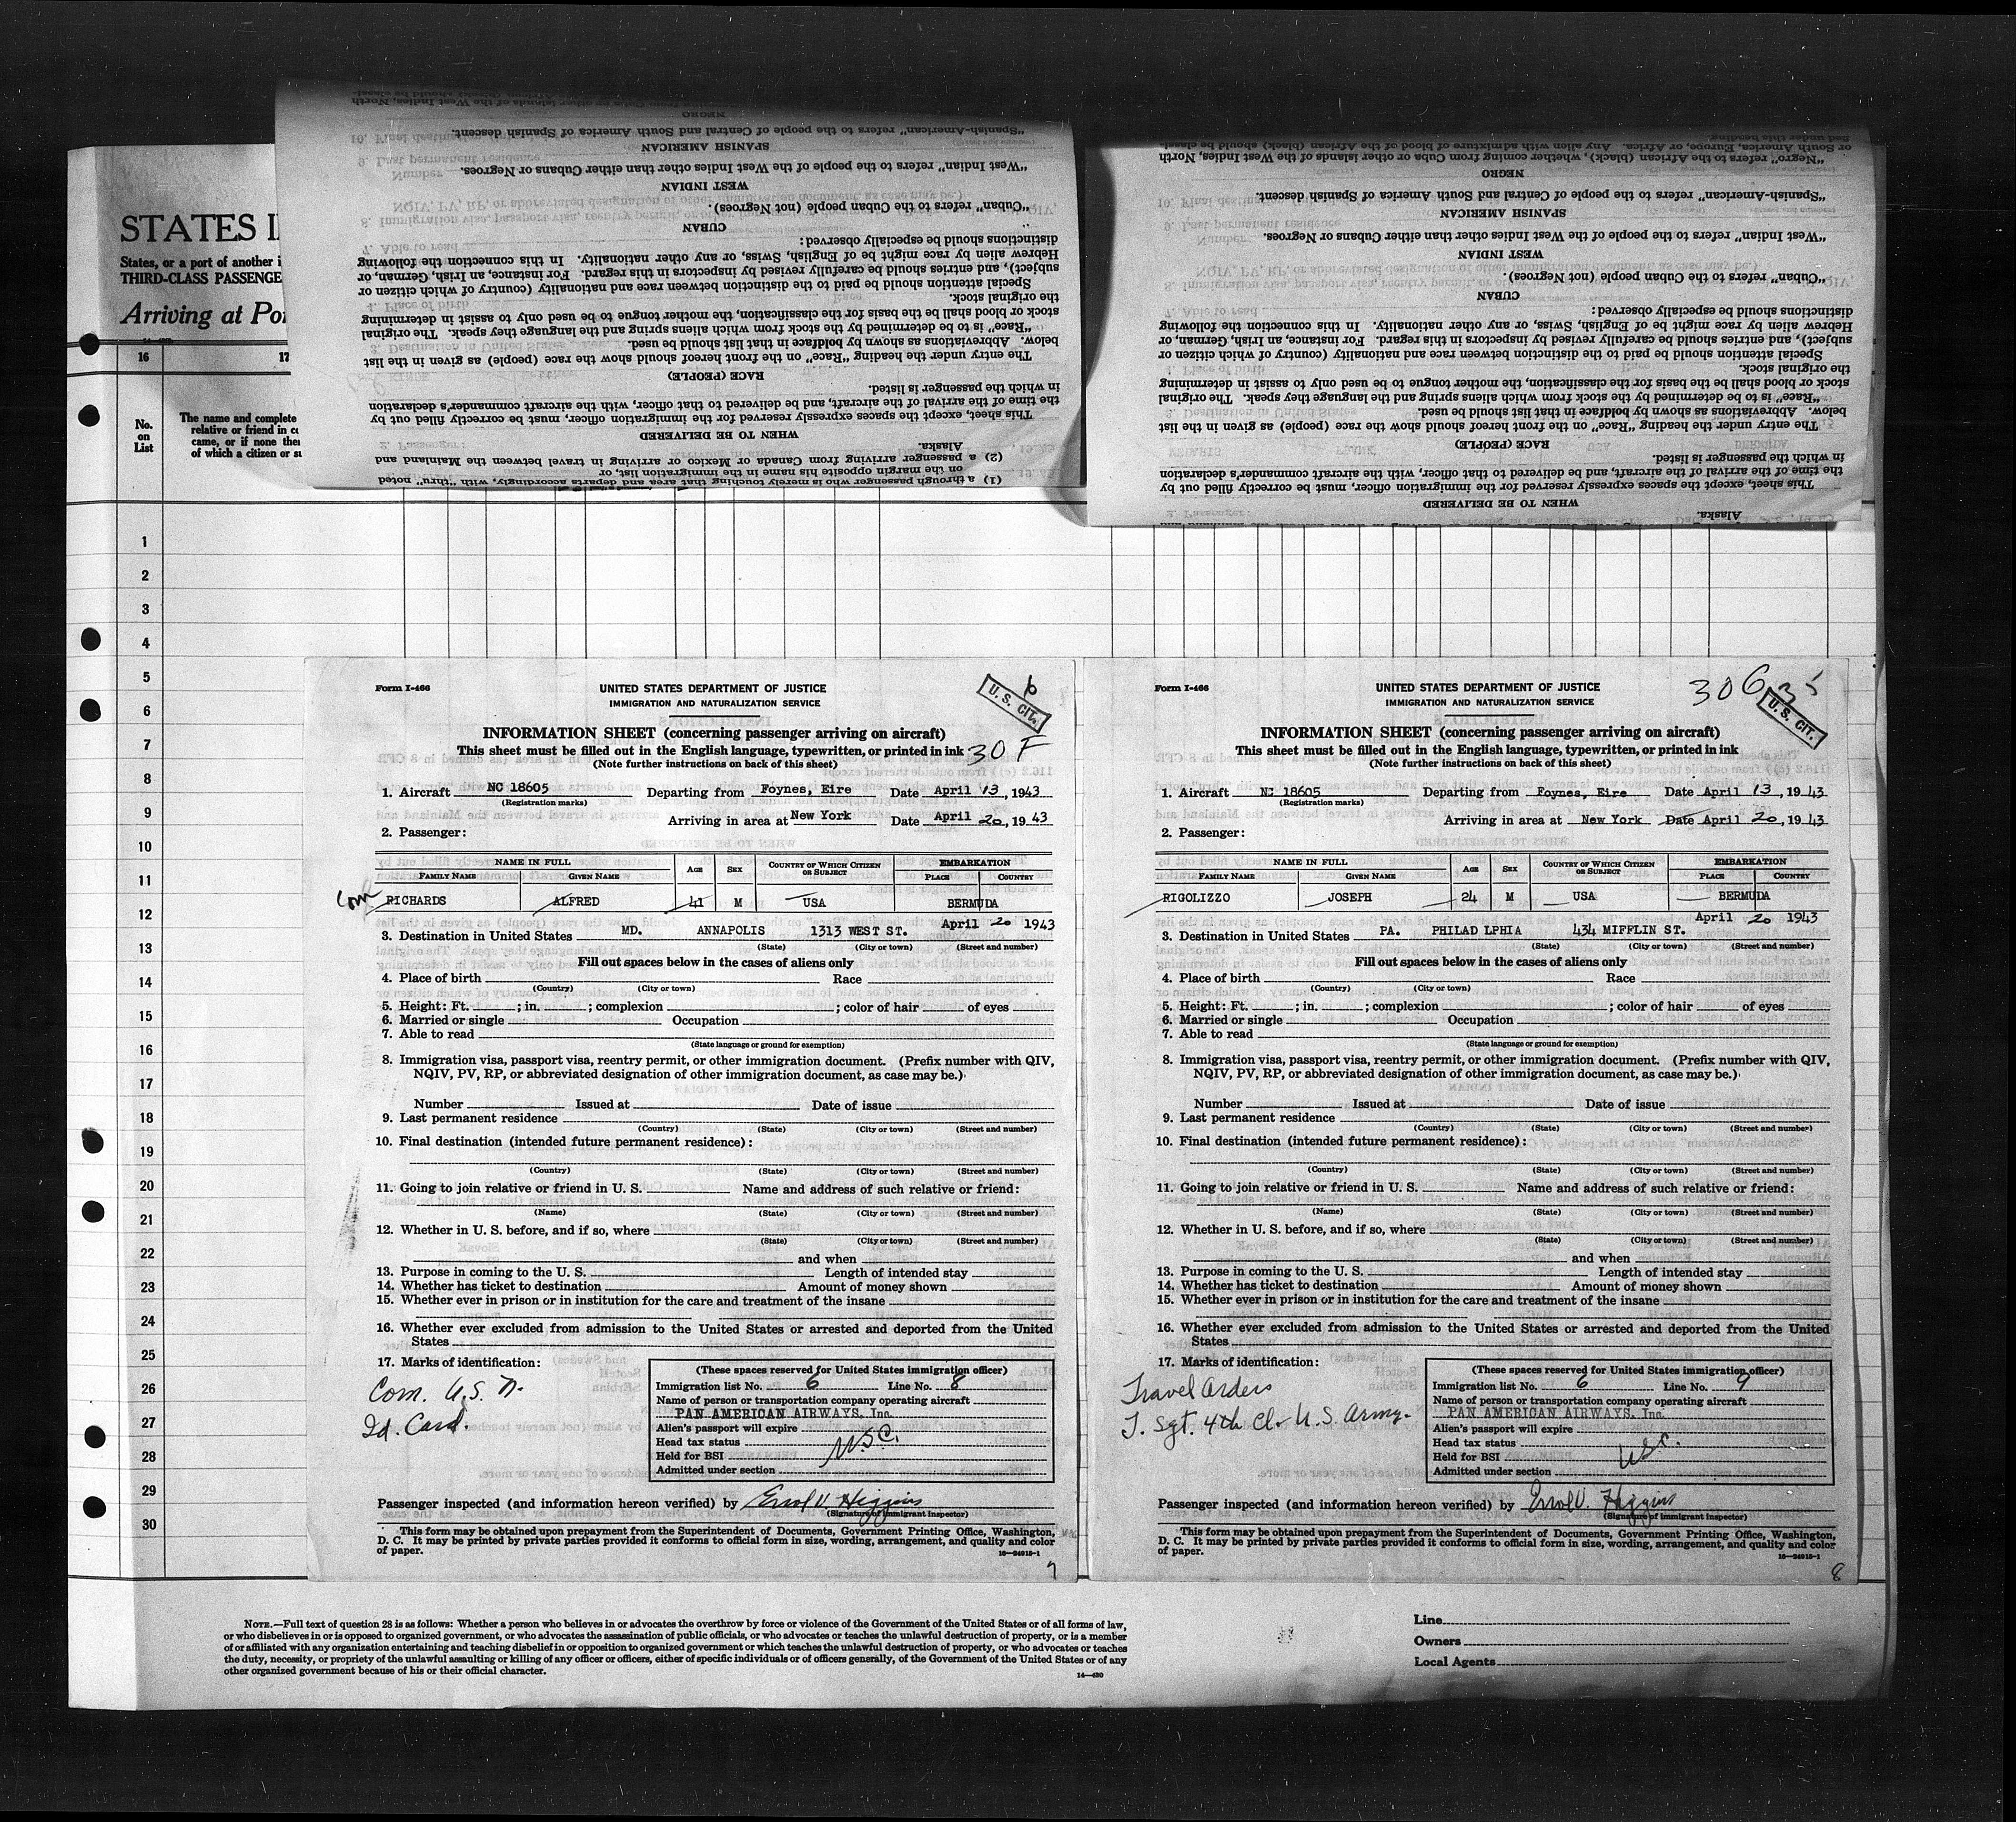 STATES I
States, or a port of another i
THIRD-CLASS PASSENGE
Arriving at Po
16 17
No.
on
List
The name and complete
relative or friend in c
came, or if none the
of which a citizen or su
"Spanish-American" refers to the people of Central and South America of Spanish descent.
SPANISH AMERICAN
"West Indian" refers to the people of the West Indies other than either Cubans or Negroes.
WEST INDIAN
"Cuban" refers to the Cuban people (not Negroes).
CUBAN
distinctions should be especially observed:
Hebrew alien by race might be of English, Swiss, or any other nationality. In this connection the following
subject), and entries should be carefully revised by inspectors in this regard. For instance, an Irish, German, or
Special attention should be paid to the distinction between race and nationality (country of which citizen or
the original stock.
stock or blood shall be the basis for the classification, the mother tongue to be used only to assist in determining
"Race" is to be determined by the stock from which aliens spring and the language they speak. The original
below. Abbreviations as shown by boldface in that list should be used.
The entry under the heading "Race" on the front hereof should show the race (people) as given in the list
RACE (PEOPLE)
in which the passenger is listed.
the time of the arrival of the aircraft, and be delivered to that officer, with the aircraft commander's declaration
This sheet, except the spaces expressly reserved for the immigration officer, must be correctly filled out by
WHEN TO BE DELIVERED
Alaska.
(2) a passenger arriving from Canada or Mexico or arriving in travel between the Mainland and
on the margin opposite his name in the immigration list, or
(1) a through passenger who is merely touching that area and departs accordingly, with "thru" noted
or South America, Europe, or Africa. Any alien with admixture of blood of the African (black) should be classi-
"Negro" refers to the African (black), whether coming from Cuba or other islands of the West Indies, North
NEGRO
"Spanish-American" refers to the people of Central and South America of Spanish descent.
SPANISH AMERICAN
"West Indian" refers to the people of the West Indies other than either Cubans or Negroes.
WEST INDIAN
"Cuban" refers to the Cuban people (not Negroes).
CUBAN
distinctions should be especially observed:
Hebrew alien by race might be of English, Swiss, or any other nationality. In this connection the following
subject), and entries should be carefully revised by inspectors in this regard. For instance, an Irish, German, or
Special attention should be paid to the distinction between race and nationality (country of which citizen or
the original stock.
stock or blood shall be the basis for the classification, the mother tongue to be used only to assist in determining
"Race" is to be determined by the stock from which aliens spring and the language they speak. The original
below. Abbreviations as shown by boldface in that list should be used.
The entry under the heading "Race" on the front hereof should show the race (people) as given in the list
RACE (PEOPLE)
in which the passenger is listed.
the time of the arrival of the aircraft, and be delivered to that officer, with the aircraft commander's declaration
This sheet, except the spaces expressly reserved for the immigration officer, must be correctly filled out by
WHEN TO BE DELIVERED
Alaska.
1
2
3
4
5
6
7
8
9
10
11
12
13
14
15
16
17
18
19
20
21
22
23
24
25
26
27
28
29
30
Form I-466
UNITED STATES DEPARTMENT OF JUSTICE
IMMIGRATION AND NATURALIZATION SERVICE
6
U. S. CIT.
INFORMATION SHEET (concerning passenger arriving on aircraft)
This sheet must be filled out in the English language, typewritten, or printed in ink 30 F
(Note further instructions on back of this sheet)
1. Aircraft NC 18605 Departing from Foynes, Eire Date April 13, 1943
(Registration marks)
Arriving in area at New York Date April 20, 1943
2. Passenger:
NAME IN FULL AGE SEX COUNTRY OF WHICH CITIZEN OR SUBJECT EMBARKATION
FAMILY NAME GIVEN NAME PLACE COUNTRY
Com RICHARDS ALFRED 41 M USA BERMUDA
April 20 1943
3. Destination in United States MD. ANNAPOLIS 1313 WEST ST.
(State) (City or town) (Street and number)
Fill out spaces below in the cases of aliens only
4. Place of birth Race
(Country) (City or town)
5. Height: Ft. ; in. ; complexion ; color of hair of eyes
6. Married or single Occupation
7. Able to read
(State language or ground for exemption)
8. Immigration visa, passport visa, reentry permit, or other immigration document. (Prefix number with QIV,
NQIV, PV, RP, or abbreviated designation of other immigration document, as case may be.)
Number Issued at Date of issue
9. Last permanent residence
(Country) (State) (City or town) (Street and number)
10. Final destination (intended future permanent residence):
(Country) (State) (City or town) (Street and number)
11. Going to join relative or friend in U. S. Name and address of such relative or friend:
(Name) (State) (City or town) (Street and number)
12. Whether in U. S. before, and if so, where
(State) (City or town) (Street and number)
and when
13. Purpose in coming to the U. S. Length of intended stay
14. Whether has ticket to destination Amount of money shown
15. Whether ever in prison or in institution for the care and treatment of the insane
16. Whether ever excluded from admission to the United States or arrested and deported from the United
States
17. Marks of identification:
Com. U.S.N.
Id. Card.
(These spaces reserved for United States immigration officer)
Immigration list No. 6 Line No. 8
Name of person or transportation company operating aircraft
PAN AMERICAN AIRWAYS, Inc.
Alien's passport will expire
Head tax status U.S.C.
Held for BSI
Admitted under section
Passenger inspected (and information hereon verified) by Errol V. Higgins
(Signature of immigrant inspector)
This form may be obtained upon prepayment from the Superintendent of Documents, Government Printing Office, Washington,
D. C. It may be printed by private parties provided it conforms to official form in size, wording, arrangement, and quality and color
of paper. 16—24915-1
7
Form I-466
UNITED STATES DEPARTMENT OF JUSTICE
IMMIGRATION AND NATURALIZATION SERVICE
30G 35
U. S. CIT.
INFORMATION SHEET (concerning passenger arriving on aircraft)
This sheet must be filled out in the English language, typewritten, or printed in ink
(Note further instructions on back of this sheet)
1. Aircraft NC 18605 Departing from Foynes, Eire Date April 13, 1943
(Registration marks)
Arriving in area at New York Date April 20, 1943
2. Passenger:
NAME IN FULL AGE SEX COUNTRY OF WHICH CITIZEN OR SUBJECT EMBARKATION
FAMILY NAME GIVEN NAME PLACE COUNTRY
RIGOLIZZO JOSEPH 24 M USA BERMUDA
April 20 1943
3. Destination in United States PA. PHILAD LPHIA 434 MIFFLIN ST.
(State) (City or town) (Street and number)
Fill out spaces below in the cases of aliens only
4. Place of birth Race
(Country) (City or town)
5. Height: Ft. ; in. ; complexion ; color of hair of eyes
6. Married or single Occupation
7. Able to read
(State language or ground for exemption)
8. Immigration visa, passport visa, reentry permit, or other immigration document. (Prefix number with QIV,
NQIV, PV, RP, or abbreviated designation of other immigration document, as case may be.)
Number Issued at Date of issue
9. Last permanent residence
(Country) (State) (City or town) (Street and number)
10. Final destination (intended future permanent residence):
(Country) (State) (City or town) (Street and number)
11. Going to join relative or friend in U. S. Name and address of such relative or friend:
(Name) (State) (City or town) (Street and number)
12. Whether in U. S. before, and if so, where
(State) (City or town) (Street and number)
and when
13. Purpose in coming to the U. S. Length of intended stay
14. Whether has ticket to destination Amount of money shown
15. Whether ever in prison or in institution for the care and treatment of the insane
16. Whether ever excluded from admission to the United States or arrested and deported from the United
States
17. Marks of identification:
Travel Orders
T. Sgt. 4th Cl. U.S. Army.
(These spaces reserved for United States immigration officer)
Immigration list No. 6 Line No. 9
Name of person or transportation company operating aircraft
PAN AMERICAN AIRWAYS, Inc.
Alien's passport will expire
Head tax status
Held for BSI USC.
Admitted under section
Passenger inspected (and information hereon verified) by Errol V. Higgins
(Signature of immigrant inspector)
This form may be obtained upon prepayment from the Superintendent of Documents, Government Printing Office, Washington,
D. C. It may be printed by private parties provided it conforms to official form in size, wording, arrangement, and quality and color
of paper. 16—24915-1
8
NOTE.—Full text of question 28 is as follows: Whether a person who believes in or advocates the overthrow by force or violence of the Government of the United States or of all forms of law,
or who disbelieves in or is opposed to organized government, or who advocates the assassination of public officials, or who advocates or teaches the unlawful destruction of property, or is a member
of or affiliated with any organization entertaining and teaching disbelief in or opposition to organized government or which teaches the unlawful destruction of property, or who advocates or teaches
the duty, necessity, or propriety of the unlawful assaulting or killing of any officer or officers, either of specific individuals or of officers generally, of the Government of the United States or of any
other organized government because of his or their official character. 14—430
Line
Owners
Local Agents